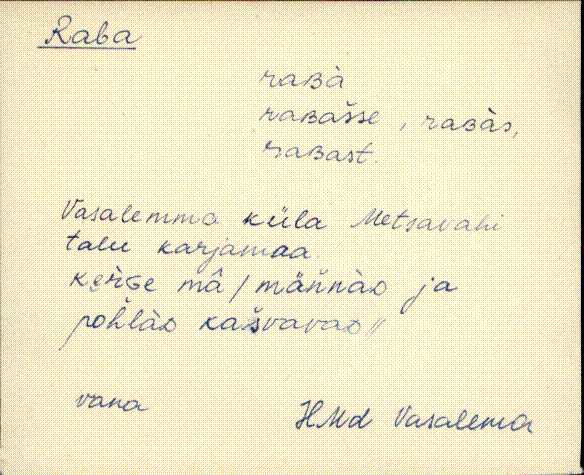 Raba
raʙà
raʙašse, raʙàs,
raʙast.
Vasalemma küla Metsavahi
talu karjamaa.
kerɢe mâ / männàᴅ ja
pohlàᴅ kašvavaᴅ //
vana
HMd Vasalema